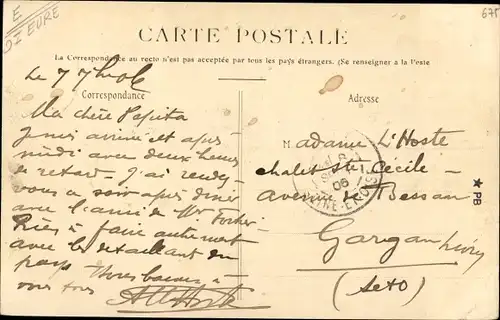 E
27 EURE
675
CARTE POSTALE
La Correspondance au recto n'est pas acceptée par tous les pays étrangers. (Se renseigner à la Poste
Correspondance
Le 7
Ma chère Pépita
Je suis arrivé cet après
midi avec deux heures
de retard - J'ai rendez
vous ce soir après dîner
avec l'ami de Mr
Rien à faire autrement
avec les détaillants du
pays
vous tous
Adresse
M adame L'Hoste
chalet Ste Cécile -
avenue de
Gargan Livry
(S et O)
06
★ PB